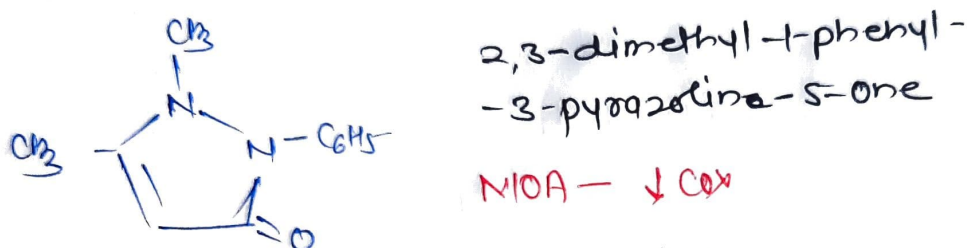 CH3
N
CH3
N-C6H5
O
2,3-dimethyl-1-phenyl-
-3-pyrazoline-5-one
MOA- ↓ Cox